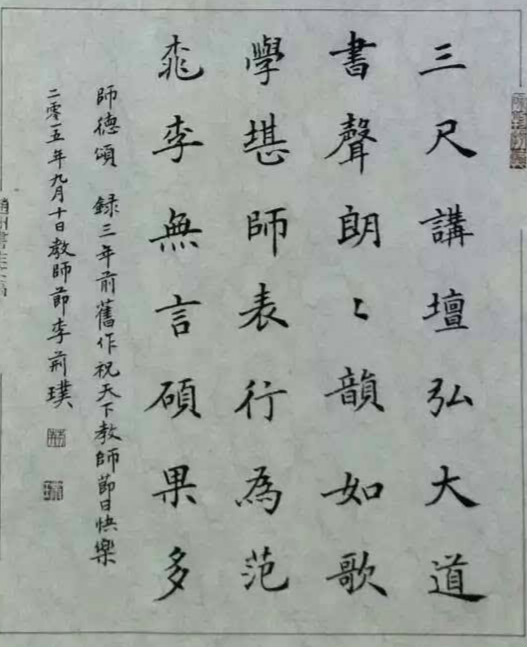 三尺講壇弘大道
書聲朗〻韻如歌
學堪師表行為范
桃李無言碩果多
師德頌　録三年前舊作祝天下教師節日快樂
二零一五年九月十日教師節李荊璞